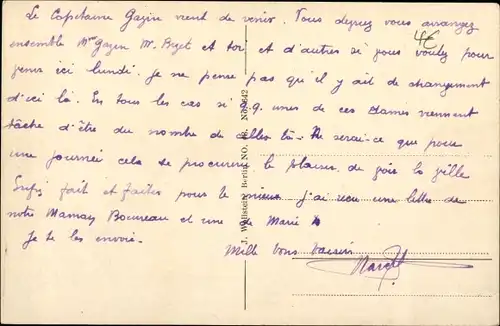 Le Capitaine Gazin vient de venir. Vous devriez vous arranger
4€
ensemble Mme Gazin M. et toi et d'autres si vous voulez pour
venir ici lundi. Je ne pense pas qu'il y ait de changement
d'ici là. En tous les cas si q.q. unes de ces Dames viennent
tâche d'être du nombre de celles là. Ne serait-ce que pour
une journée cela te procurera le plaisir de voir la fille
fait et faites pour le mieux j'ai reçu une lettre de
notre Maman et une de Marie
Je te les envoie.
Mille bons baisers
J. Wollstein, Berlin NO. 18. No. 642